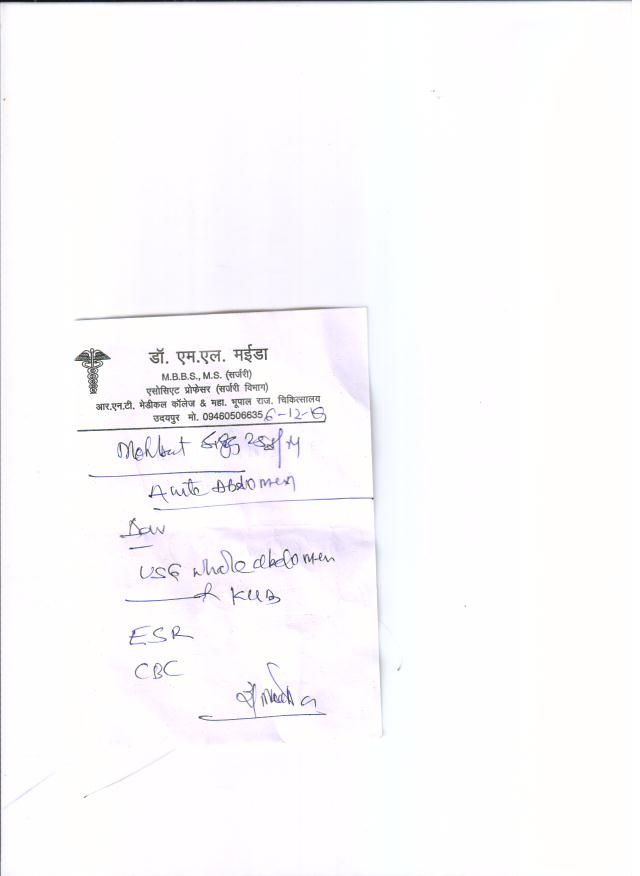 डॉ. एम.एल. मईडा
M.B.B.S., M.S. (सर्जरी)
एसोसिएट प्रोफेसर (सर्जरी विभाग)
आर.एन.टी. मेडीकल कॉलेज & महा. भूपाल राज. चिकित्सालय
उदयपुर मो. 09460506635 6-12-18
Mohbat
Acute Abdomen
USG whole abdomen
& KUB
ESR
CBC